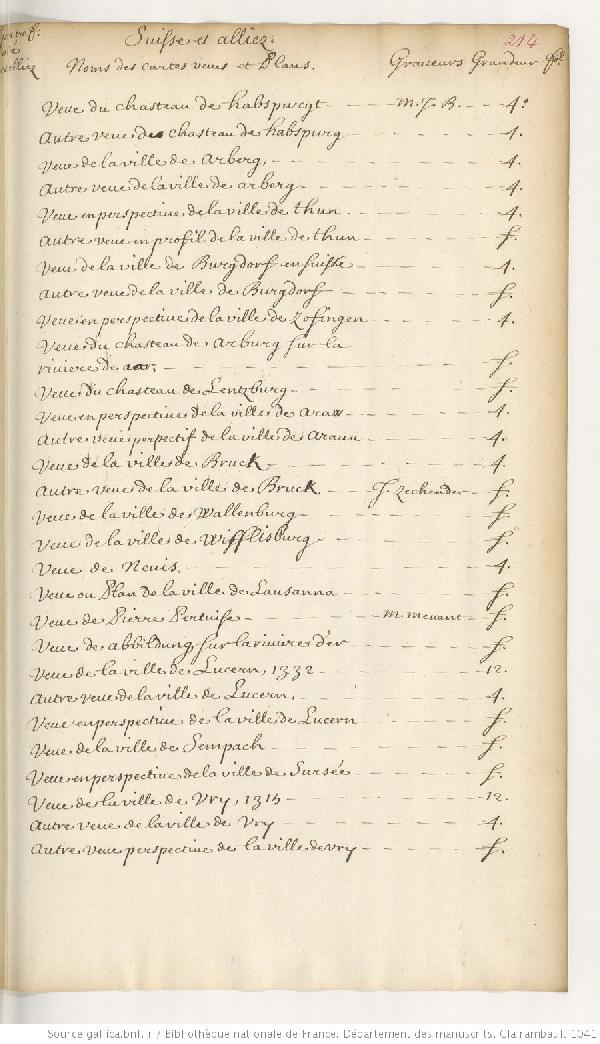 Suisse et alliez. 214
Noms des cartes veues et Plans. Graveurs Grandeur
Veue du chasteau de habspurgt M. J. B. 4.º
Autre veue de chasteau de habspurg 4.
Veue de la ville de Arberg, 4.
Autre veue de la ville de arberg 4.
Veue en perspective de la ville de thun 4.
Autre veue en profil de la ville de thun f.
Veue de la ville de Burgdorf en suisse 4.
Autre veue de la ville de Burgdorf f.
Veue en perspective de la ville de Zofingen 4.
Veue du chasteau de Arburg sur la
riviere de aar. f.
Veue du chasteau de Lentzburg f.
Veue en perspective de la ville de Araw 4.
Autre veue perpectif de la ville de Arauu 4.
Veue de la ville de Bruck 4.
Autre veue de la ville de Bruck J. Zechender f.
Veue de la ville de Wallenburg f.
Veue de la ville de Wifflisburg f.
Veue de Nevis 4.
Veue ou Plan de la ville de Lausanna f.
Veue de Pierre Pertuise M. Meuant f.
Veue de abbildung sur la riviere d'er f.
Veue de la ville de Lucern, 1332 12.
Autre veue de la ville de Lucern, 4.
Veue en perspective de la ville de Lucern f.
Veue de la ville de Sempach f.
Veue en perspective de la ville de Sursée f.
Veue de la ville de Vry, 1315 12.
Autre veue de la ville de Vry 4.
Autre veue perspective de la ville de vry f.
Source gallica.bnf.fr / Bibliothèque nationale de France. Département des manuscrits. Clairambault 1041